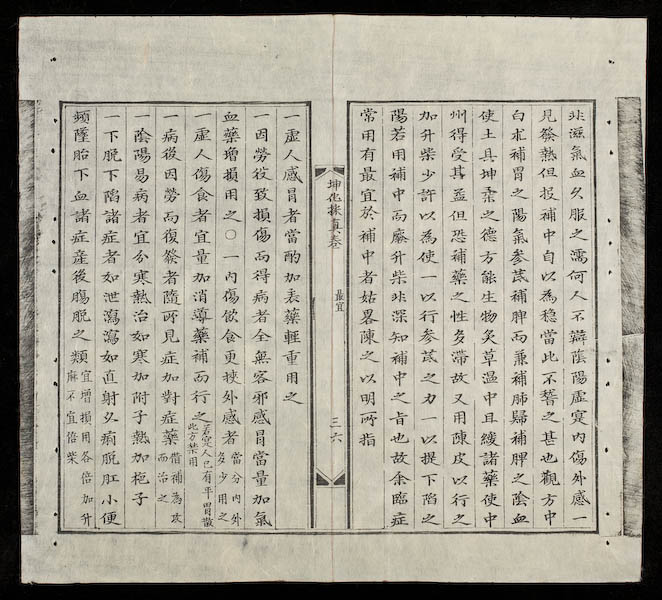 非滋氣血久服之濡何人不辯陰陽虛寔内傷外感一
見發熱但投補中自以為穩當此不誓之甚也觀方中
白朮補胃之陽氣參芪補脾而兼補肺歸補脾之陰血
使土具坤柔之德方能生物炙草溫中且緩諸藥使中
州得受其益但恐補藥之性多滯故又用陳皮以行之
加升柴少許以為使一以行參芪之力一以提下陷之
陽若用補中而廢升柴非深知補中之旨也故余臨症
常用有最宜於補中者姑畧陳之以明所指
坤化採真卷
最宜
三六
一虛人感冒者當酌加表藥輕重用之
一因勞役致損傷而得病者全無客邪感冒當量加氣
血藥增損用之〇一内傷飲食更挾外感者當分内外多少用之
一虛人傷食者宜量加消導藥補而行之若寔人已有平胃散此方禁用
一病後因勞而復發者隨所見症加對症藥借補為攻而治之
一陰陽易病者宜分寒熱治如寒加附子熱加梔子
一下脫下陷諸症者如泄瀉瀉如直射久痢脫肛小便
頻墮胎下血諸症產後腸脫之類宜增損用各倍加升麻不宜倍柴